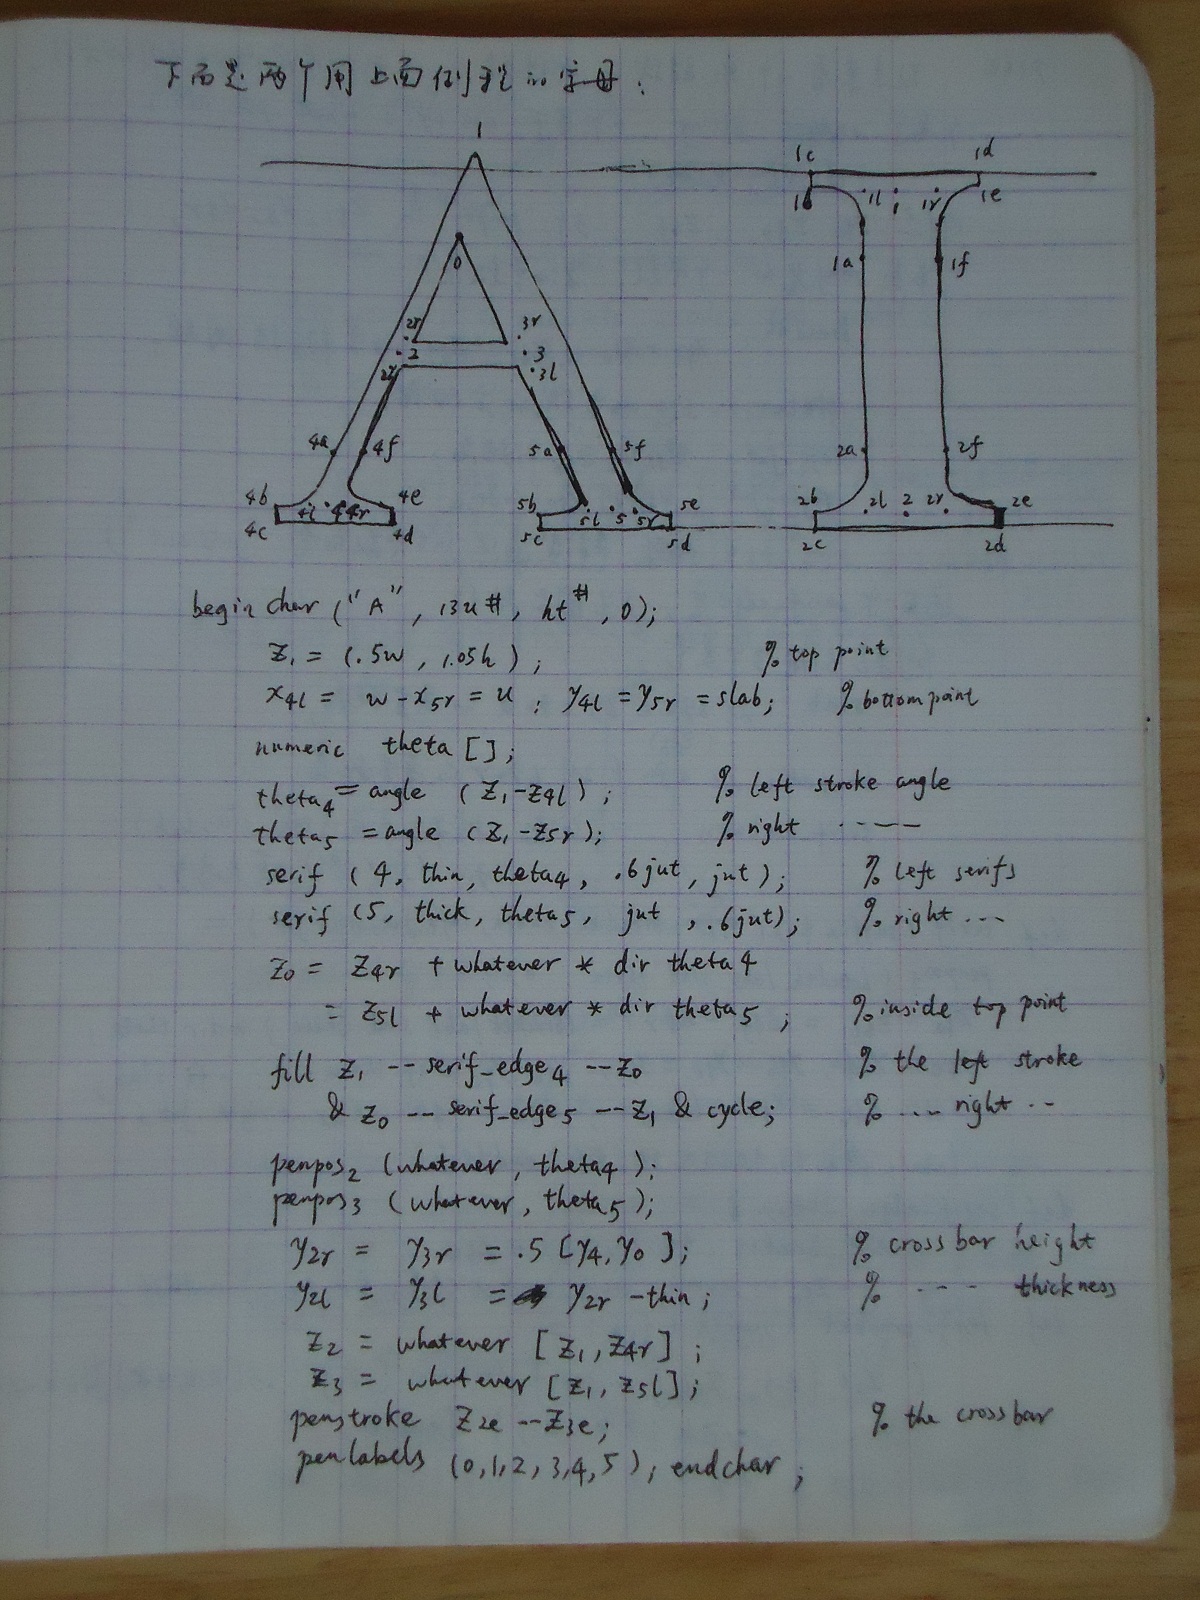 下面是两个用上面例程的字母:
1
1c 1d
1b 1l 1 1r 1e
0
1a 1f
2r 3r
2 3
2l 3l
4a 4f 5a 5f 2a 2f
4b 4e 5b 5e 2b 2l 2 2r 2e
4l 4 4r 5l 5 5r
4c 4d 5c 5d 2c 2d
beginchar ("A", 13u#, ht#, 0);
z₁ = (.5w, 1.05h); % top point
x₄l = w-x₅r = u; y₄l = y₅r = slab; % bottom point
numeric theta [];
theta₄ = angle (z₁-z₄l); % left stroke angle
theta₅ = angle (z₁-z₅r); % right ----
serif (4, thin, theta₄, .6jut, jut); % left serifs
serif (5, thick, theta₅, jut, .6jut); % right ---
z₀ = z₄r + whatever * dir theta4
= z₅l + whatever * dir theta₅; % inside top point
fill z₁ -- serif_edge₄ -- z₀ % the left stroke
& z₀ -- serif_edge₅ -- z₁ & cycle; % --- right --
penpos₂ (whatever, theta₄);
penpos₃ (whatever, theta₅);
y₂r = y₃r = .5 [y₄, y₀]; % crossbar height
y₂l = y₃l = y₂r - thin; % --- thickness
z₂ = whatever [z₁, z₄r];
z₃ = whatever [z₁, z₅l];
penstroke z₂e -- z₃e; % the crossbar
penlabels (0,1,2,3,4,5); endchar;